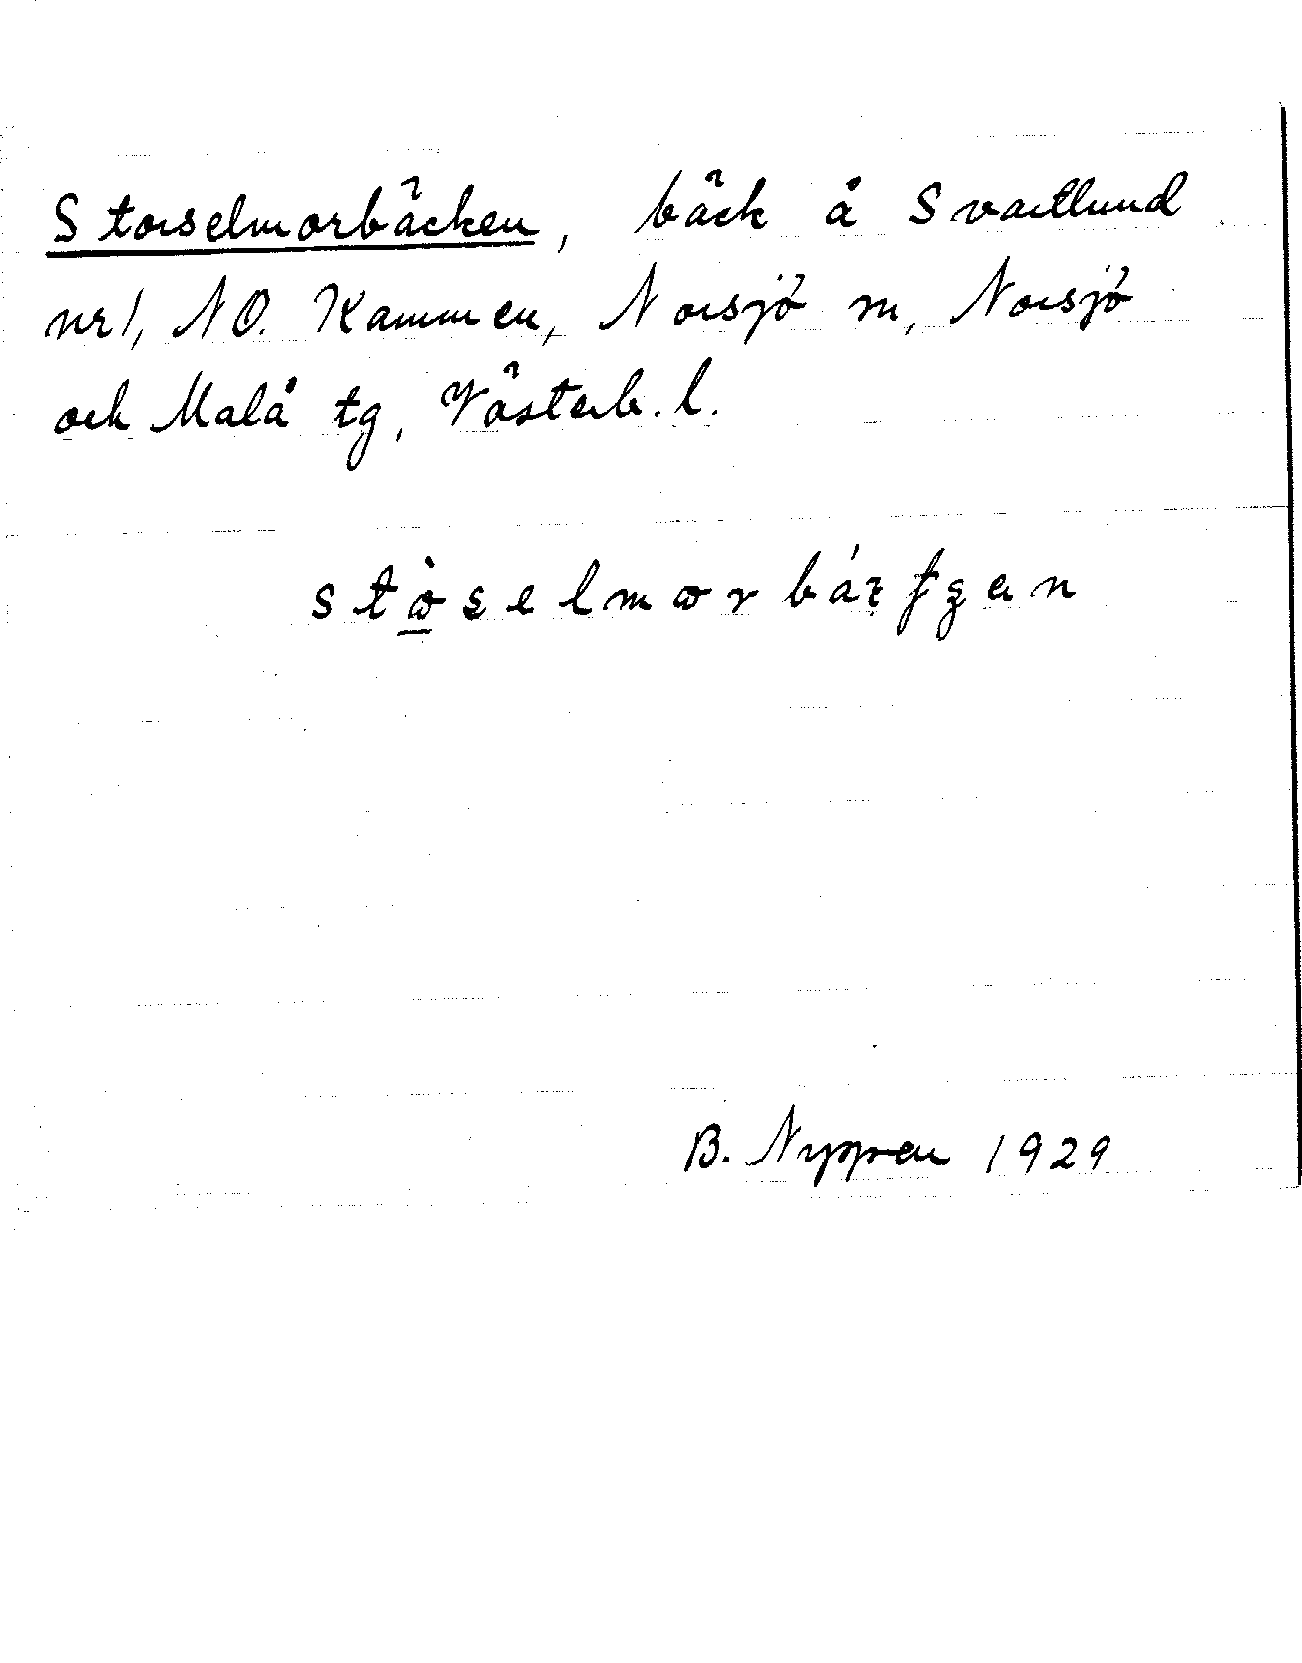 Storselmorbäcken, bäck å Svartlund
nr 1, NO. Kammen, Norsjö sn, Norsjö
och Malå tg, Västerb. l.
B. Nygren 1929